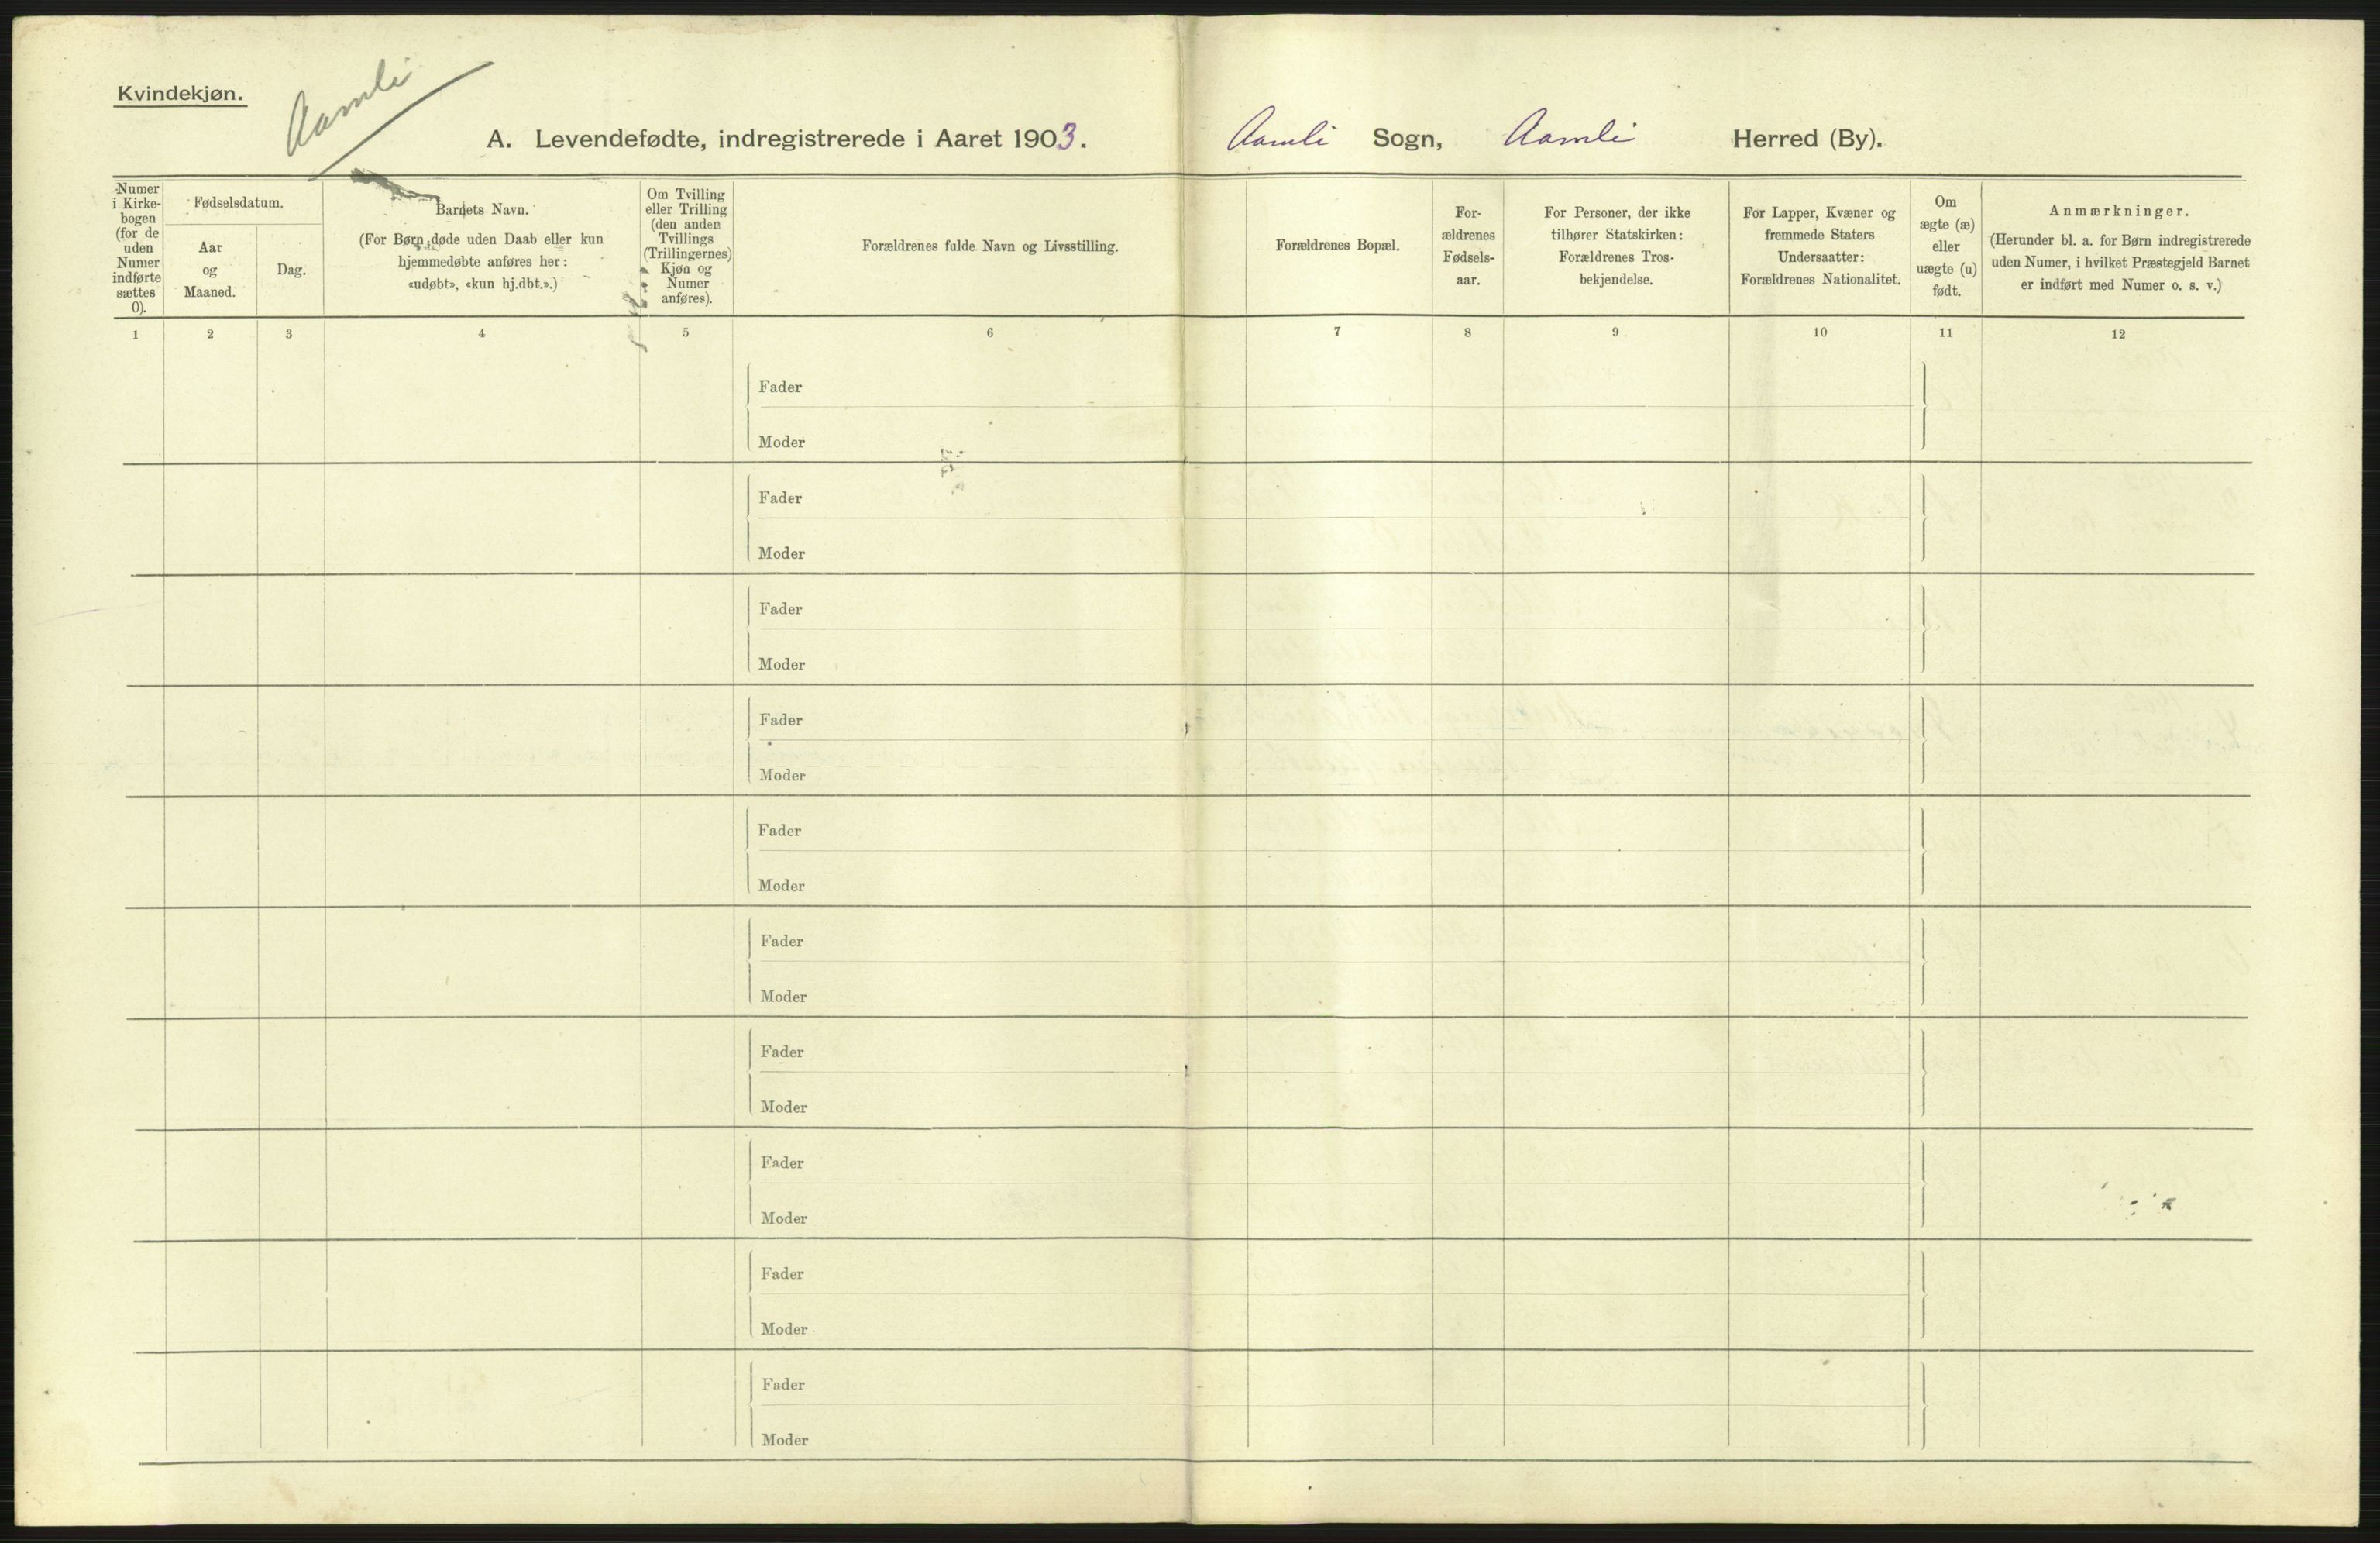 Kvindekjøn.
Aamli
A. Levendefødte, indregistrerede i Aaret 1903.
Aamli Sogn, Aamli Herred (By).
Numer
i Kirke-
bogen
(for de
uden
Numer
indførte
sættes
0).
Fødselsdatum.
Aar
og
Maaned.
Dag.
Barnets Navn.
(For Børn døde uden Daab eller kun
hjemmedøbte anføres her:
«udøbt», «kun hj.dbt.».)
Om Tvilling
eller Trilling
(den anden
Tvillings
(Trillingernes)
Kjøn og
Numer
anføres).
Forældrenes fulde Navn og Livsstilling.
Forældrenes Bopæl.
For-
ældrenes
Fødsels-
aar.
For Personer, der ikke
tilhører Statskirken:
Forældrenes Tros-
bekjendelse.
For Lapper, Kvæner og
fremmede Staters
Undersaatter:
Forældrenes Nationalitet.
Om
ægte (æ)
eller
uægte (u)
født.
Anmærkninger.
(Herunder bl. a. for Børn indregistrerede
uden Numer, i hvilket Præstegjeld Barnet
er indført med Numer o. s. v.)
1 2 3 4 5 6 7 8 9 10 11 12
Fader
Moder
Fader
Moder
Fader
Moder
Fader
Moder
Fader
Moder
Fader
Moder
Fader
Moder
Fader
Moder
Fader
Moder
Fader
Moder